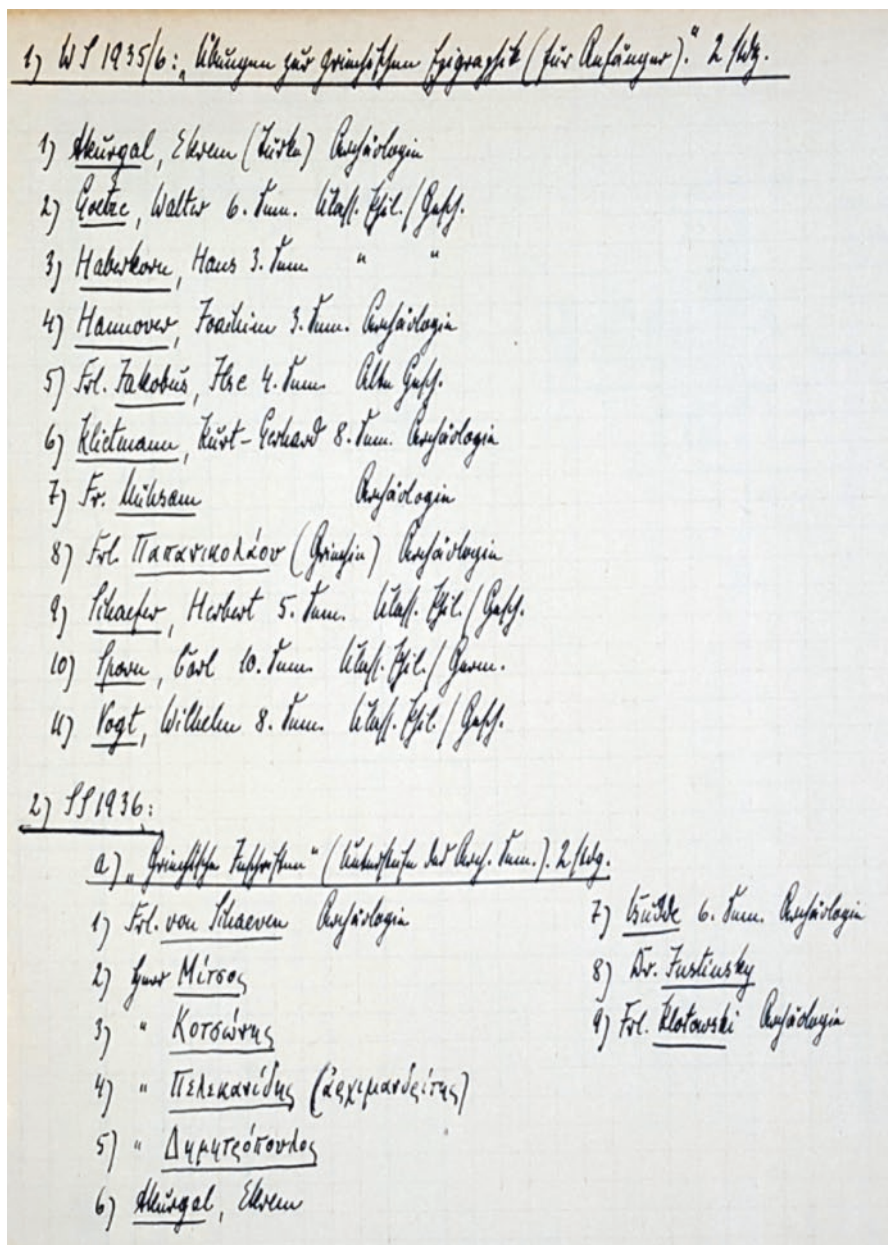 1) WS 1935/6: „Übungen zur griechischen Epigraphik (für Anfänger)." 2 stdg.
1) Akurgal, Ekrem (Türke) Archäologie
2) Goetze, Walter 6. Sem. Klass. Phil. / Gesch.
3) Haberkorn, Hans 3. Sem. " "
4) Hannover, Joachim 3. Sem. Archäologie
5) Frl. Jakobus, Ilse 4. Sem. Alte Gesch.
6) Klietmann, Kurt-Gerhard 8. Sem. Archäologie
7) Fr. Mühsam Archäologie
8) Frl. Παπανικολάου (Griechin) Archäologie
9) Schaefer, Herbert 5. Sem. Klass. Phil. / Gesch.
10) Sporn, Carl 10. Sem. Klass. Phil. / Germ.
11) Vogt, Wilhelm 8. Sem. Klass. Phil. / Gesch.
2) SS 1936:
a) „Griechische Inschriften" (Unterstufe des Arch. Sem.). 2 stdg.
1) Frl. von Schaeven Archäologie
2) Herr Μίτσος
3) " Κοτσώνης
4) " Πελεκανίδης (ἀρχιμανδρίτης)
5) " Δημητρόπουλος
6) Akurgal, Ekrem
7) Budde 6. Sem. Archäologie
8) Dr. Justinsky
9) Frl. Klotowski Archäologie